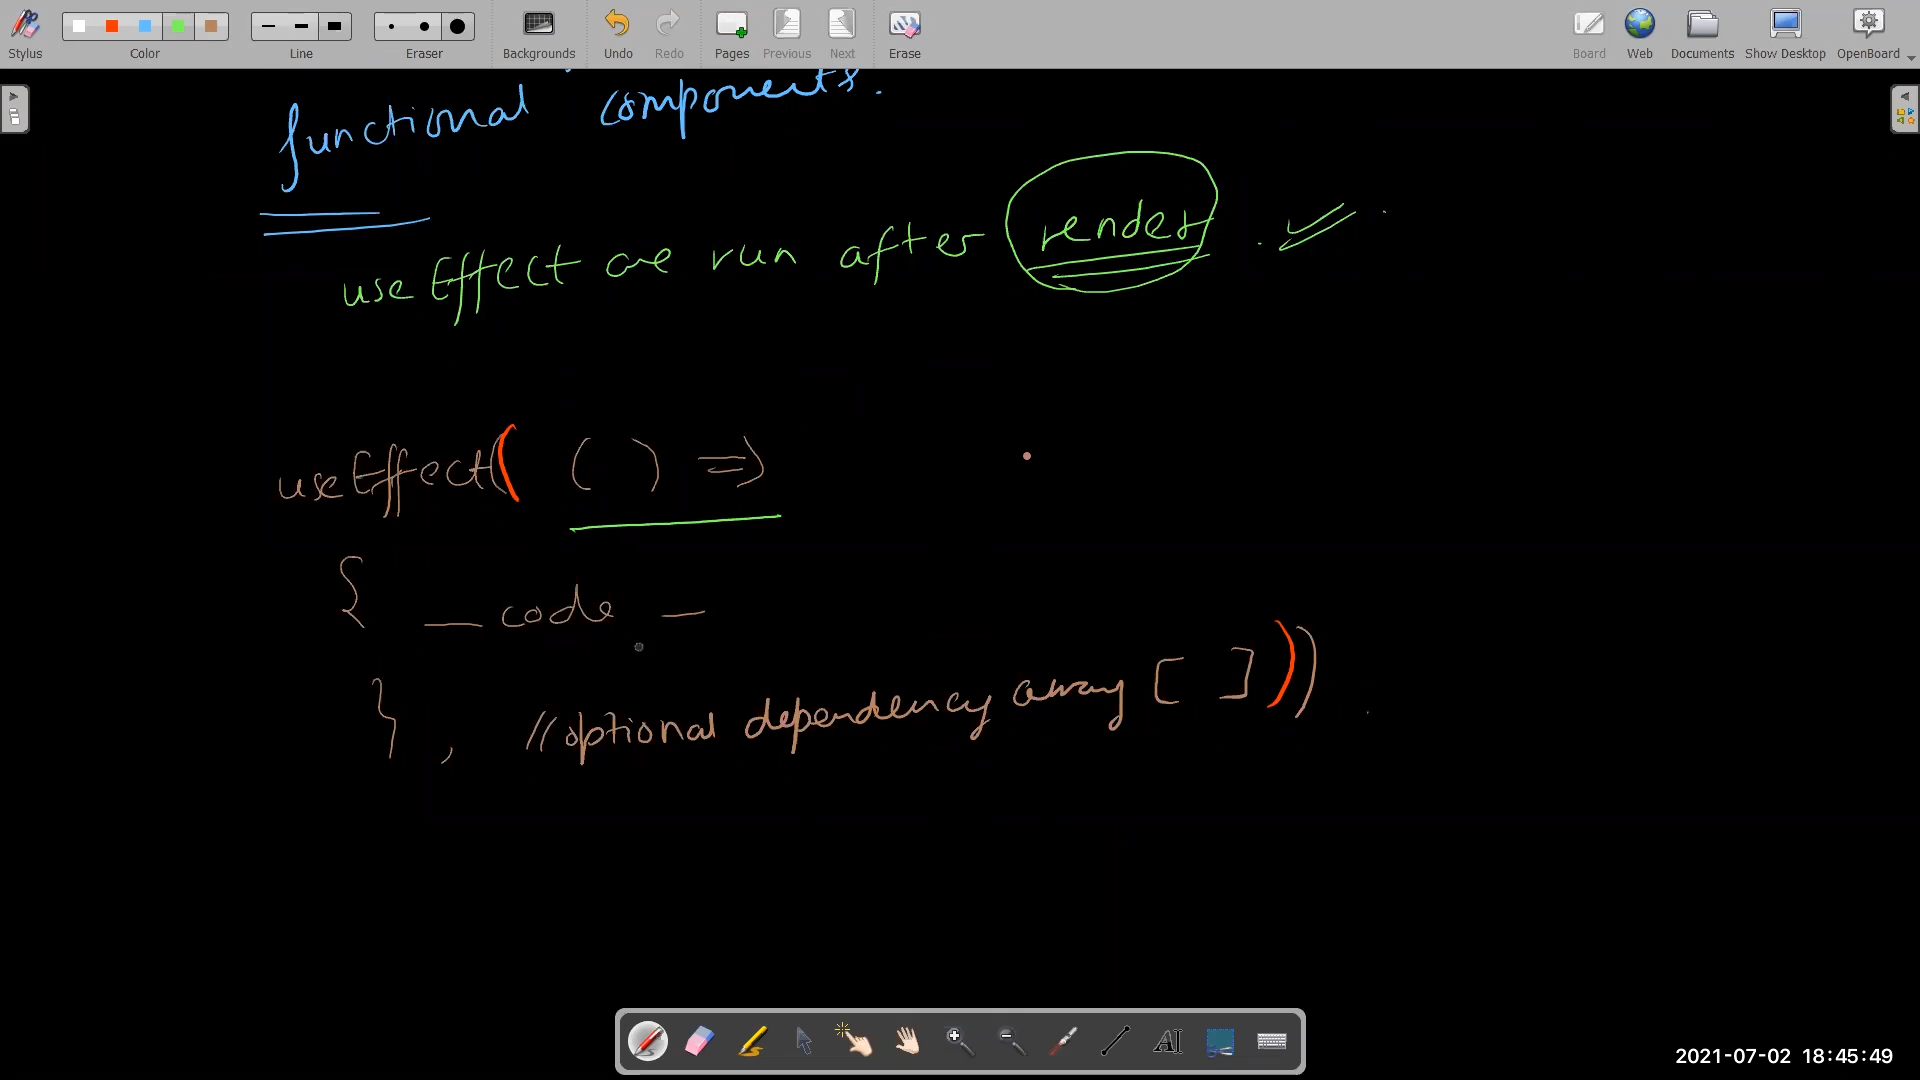 Stylus Color Line Eraser Backgrounds Undo Redo Pages Previous Next Erase Board Web Documents Show Desktop OpenBoard
functional components.
useEffect are run after render.
useEffect(( ) =>
{ — code —
} , //optional dependency array [ ]))
2021-07-02 18:45:49